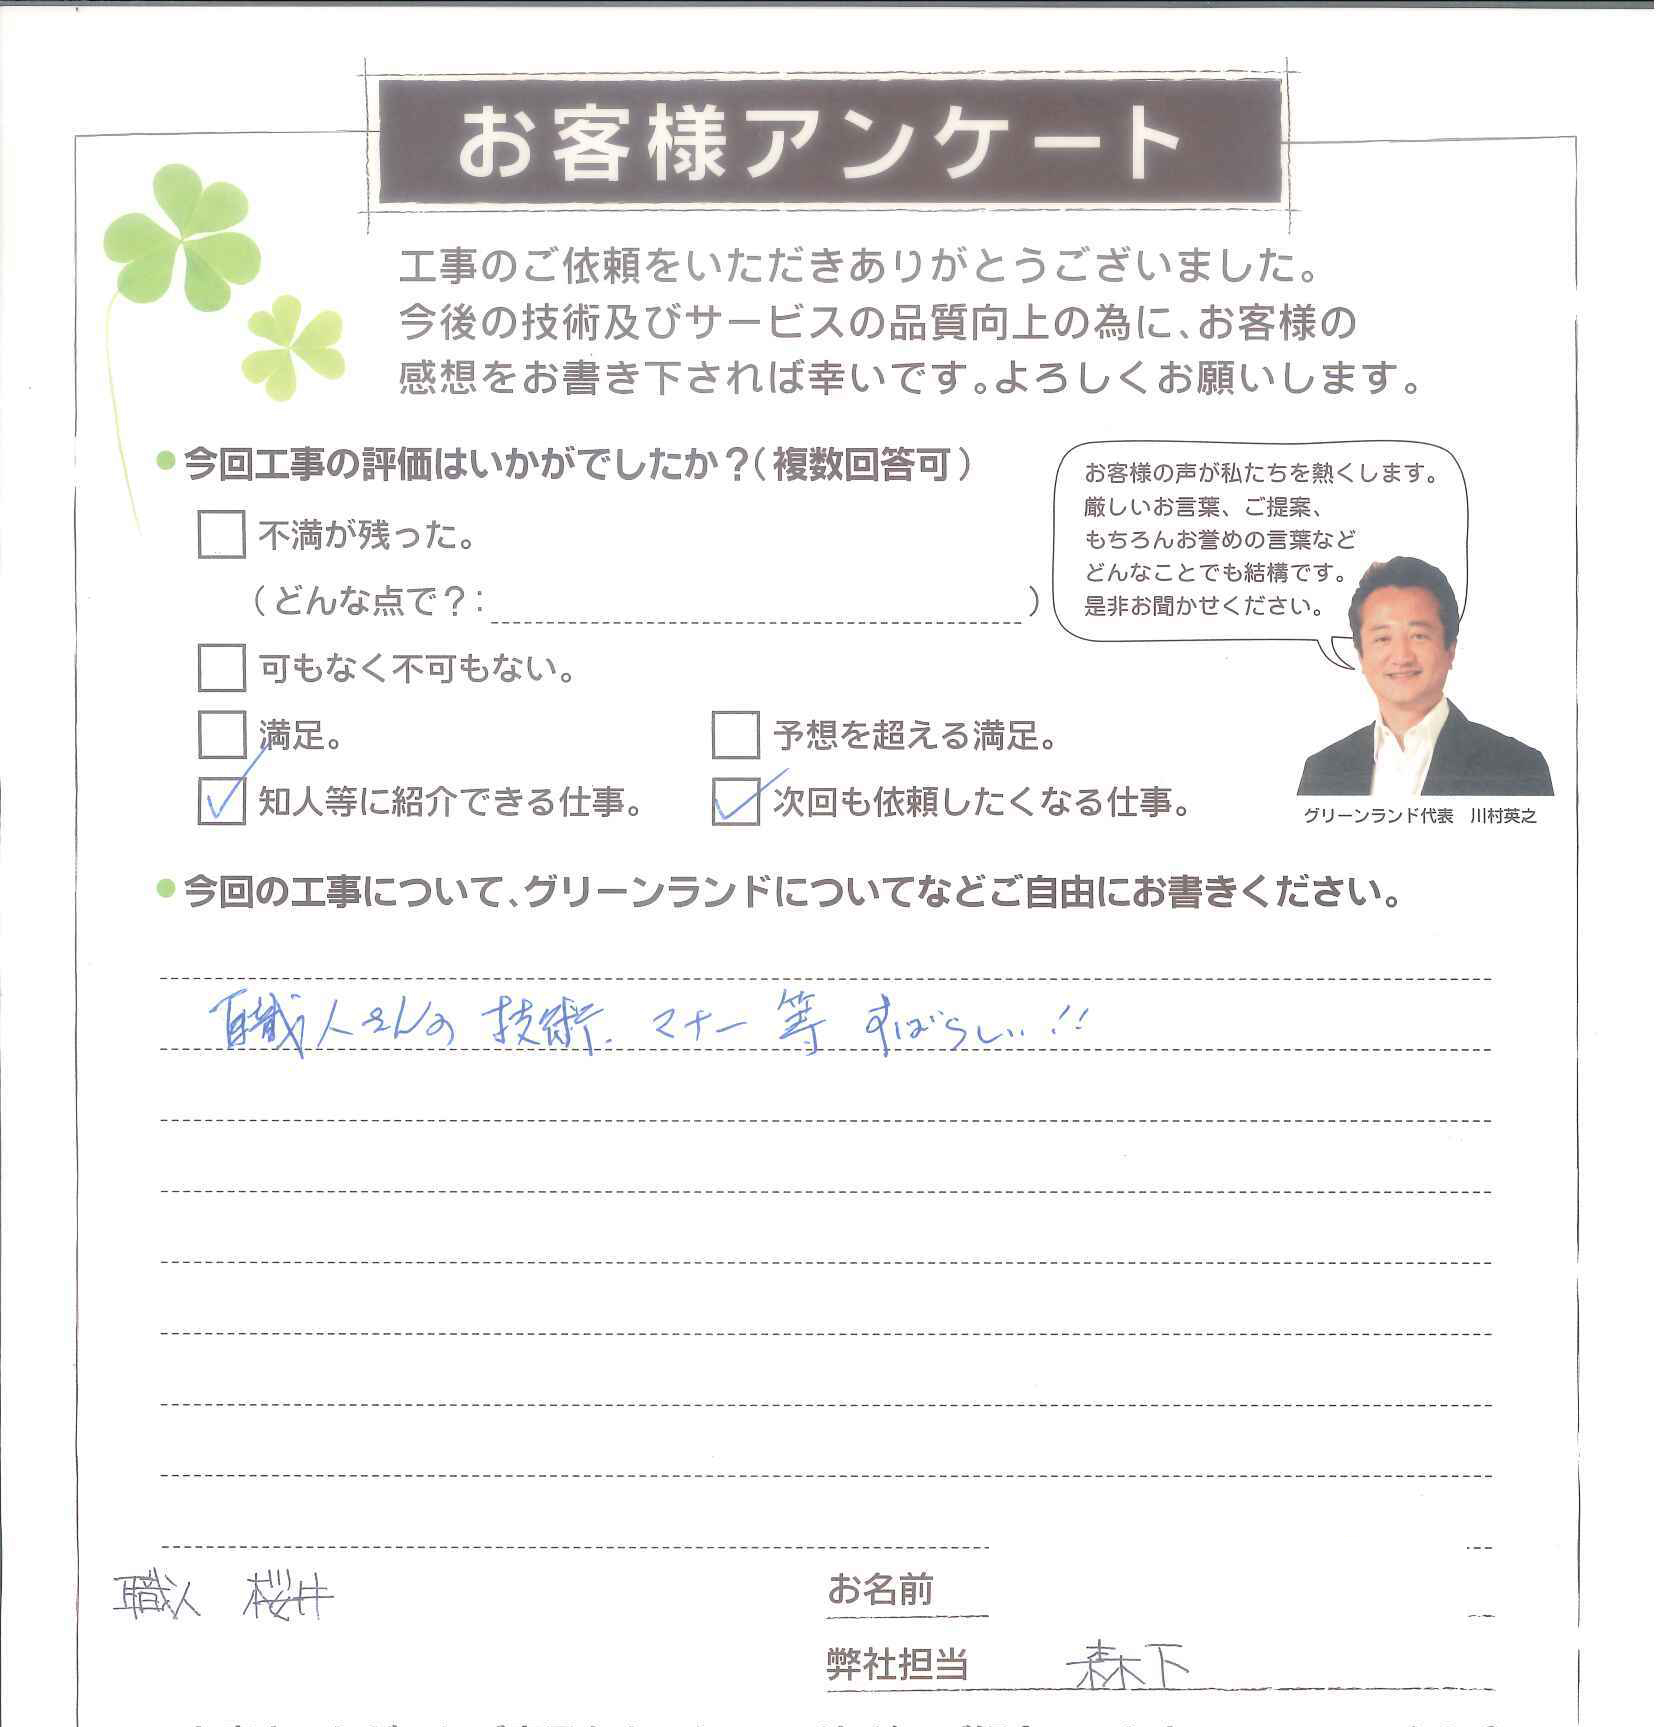 お客様アンケート
工事のご依頼をいただきありがとうございました。
今後の技術及びサービスの品質向上の為に、お客様の
感想をお書き下されば幸いです。よろしくお願いします。
●今回工事の評価はいかがでしたか？（複数回答可）
不満が残った。
（どんな点で？：　　　）
可もなく不可もない。
満足。
予想を超える満足。
知人等に紹介できる仕事。
次回も依頼したくなる仕事。
お客様の声が私たちを熱くします。
厳しいお言葉、ご提案、
もちろんお誉めの言葉など
どんなことでも結構です。
是非お聞かせください。
グリーンランド代表　川村英之
●今回の工事について、グリーンランドについてなどご自由にお書きください。
職人さんの 技術、マナー 等 すばらしい!!
職人 桜井
お名前
弊社担当 森下